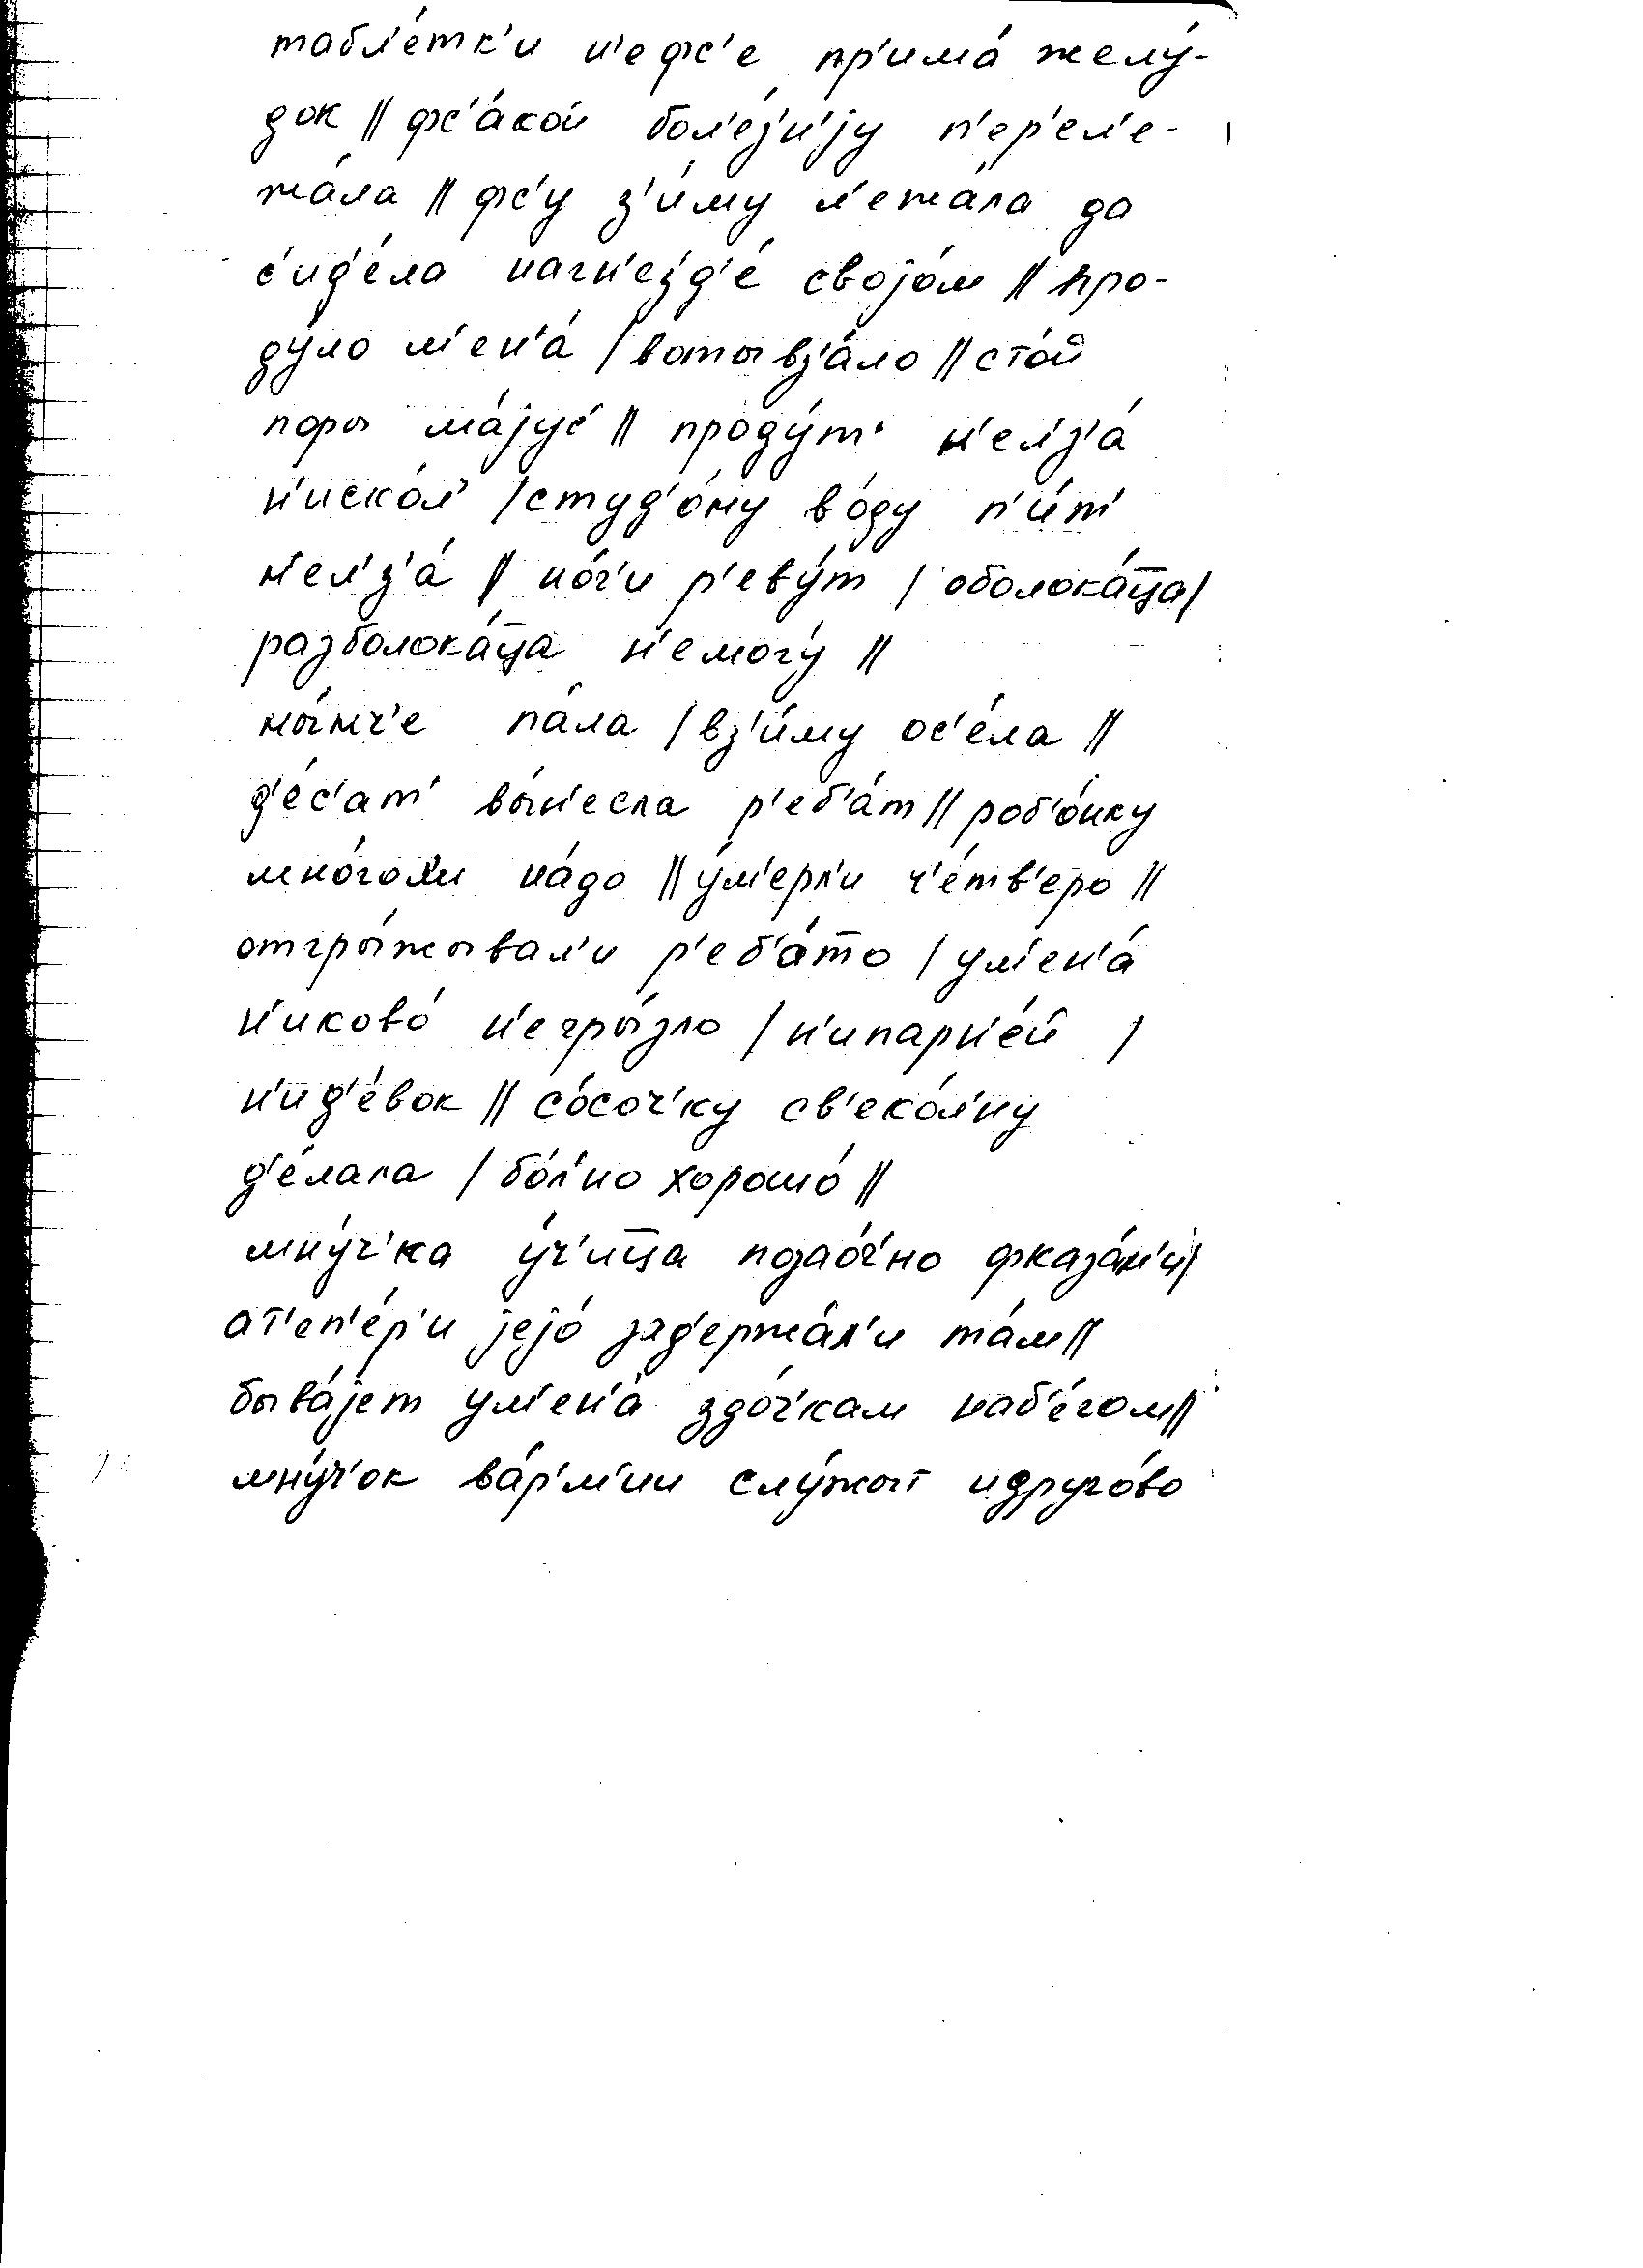 табл'е́тк'и н'ефс'е пр'има́ желу́-
док || фс'а́кой бол'е́з'н'ију п'ер'ел'е-
жа́ла || фс'у з'и́му л'ежа́ла да
с'ид'е́ла нагн'ез'д'е́ својо́м || про-
ду́ло м'ен'а́ / вотывз'а́ло || сто́й
поры ма́јус' || проду́т' н'ел'з'а́
н'иско́л' / студ'о́ну во́ду п'и́т'
н'ел'з'а́ || но́г'и р'еву́т / оболока́ц̅а /
разболока́ц̅а н'емогу́ ||
ны́нч'е па́ла / вз'и́му ос'е́ла ||
д'е́с'ат' вы́н'есла р'еб'а́т || роб'о́нку
мно́гол'и на́до || у́м'ерл'и ч'е́тв'еро ||
отгры́жывал'и р'еб'а́т̅о / ум'ен'а́
н'иково́ н'егры́зло / н'ипарн'е́й /
н'ид'е́вок || со́соч'ку св'еко́л'ну
д'е́лала / бо́л'но хорошо́ ||
мну́ч'ка у́ч'иц̅а пзао́ч'но фказа́н'и /
ат'еп'е́р'и јејо́ зад'ержа́л'и та́м ||
быва́јет ум'ен'а́ здо́ч'кам наб'е́гом ||
мну́ч'ок ва́р'м'ии слу́жыт идруго́во